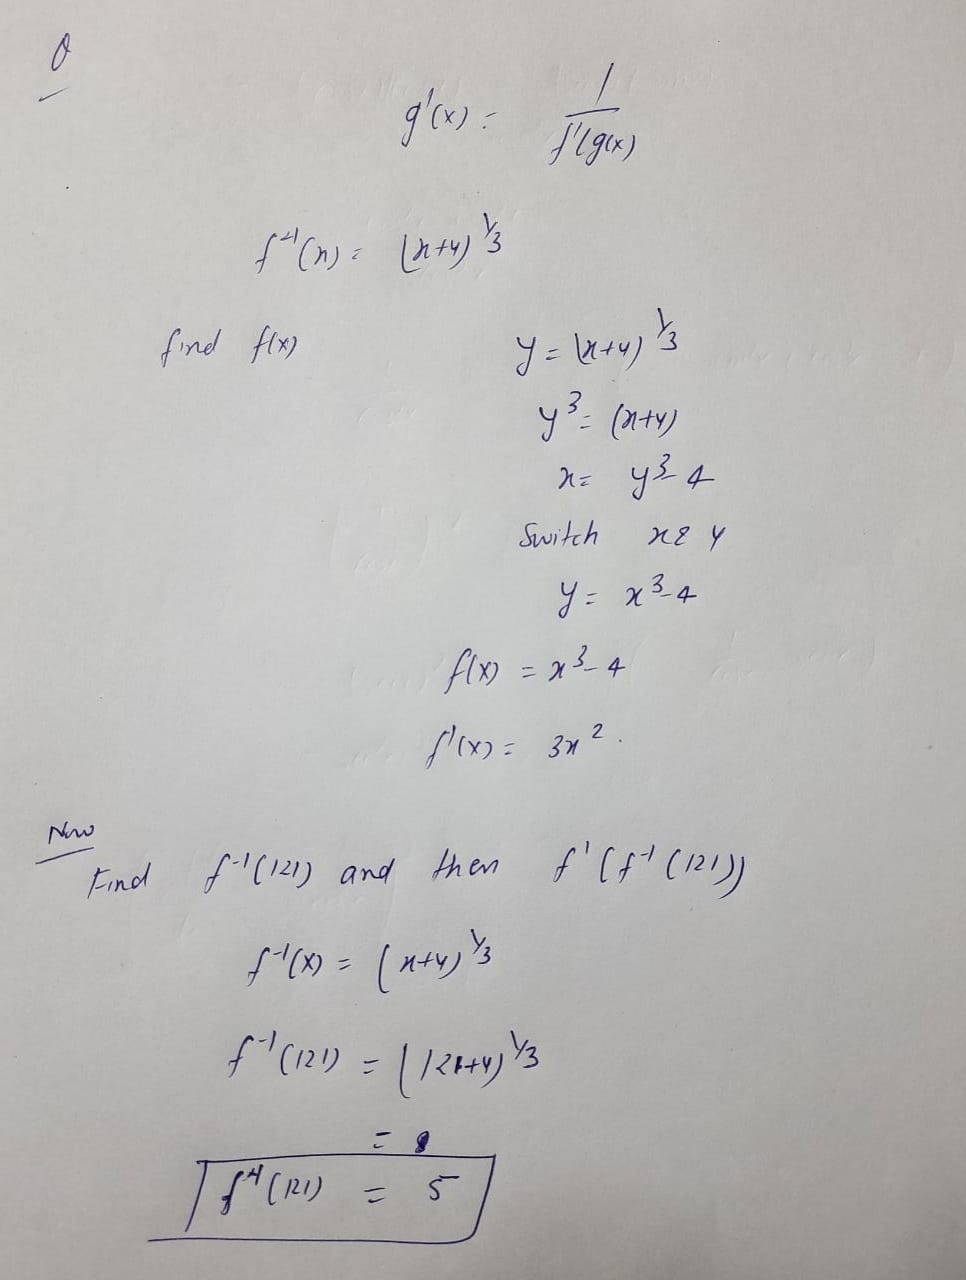 Q
g'(x) = 1/f'(g(x)
f⁻¹(x) = (x+4)^1/3
find f(x)
y = (x+4)^1/3
y³ = (x+4)
x = y³-4
Switch x & y
y = x³-4
f(x) = x³-4
f'(x) = 3x².
Now
Find f⁻¹(121) and then f'(f⁻¹(121))
f⁻¹(x) = (x+4)^1/3
f⁻¹(121) = (121+4)^1/3
=
f⁻¹(121) = 5